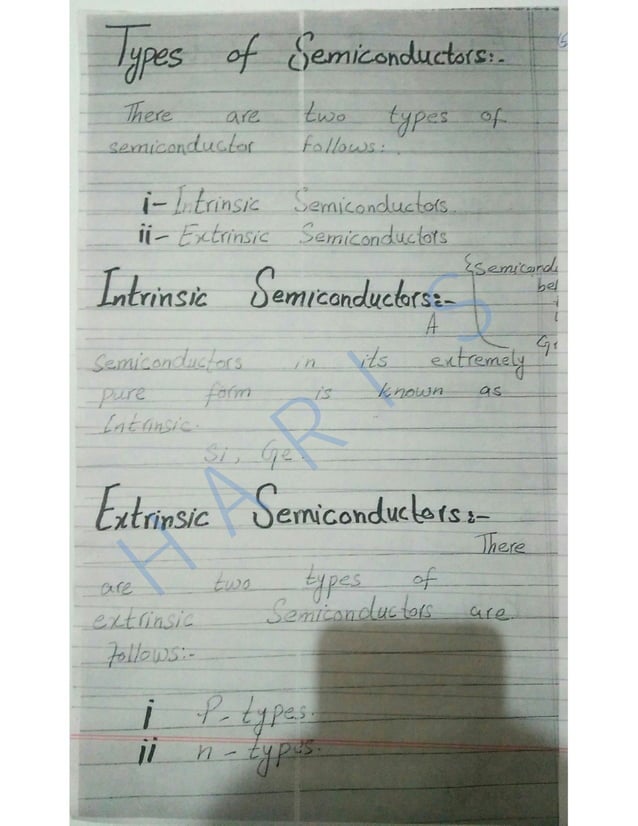 Types of Semiconductors:-
There are two types of
semiconductor follows:.
i- Intrinsic Semiconductors.
ii- Extrinsic Semiconductors
Intrinsic Semiconductors:-
A
Semiconductors in its extremely
pure form is known as
Intrinsic.
Si, Ge.
Extrinsic Semiconductors:-
There
are two types of
extrinsic Semiconductors are
follows:-
i P-types.
ii n-types.
HARIS